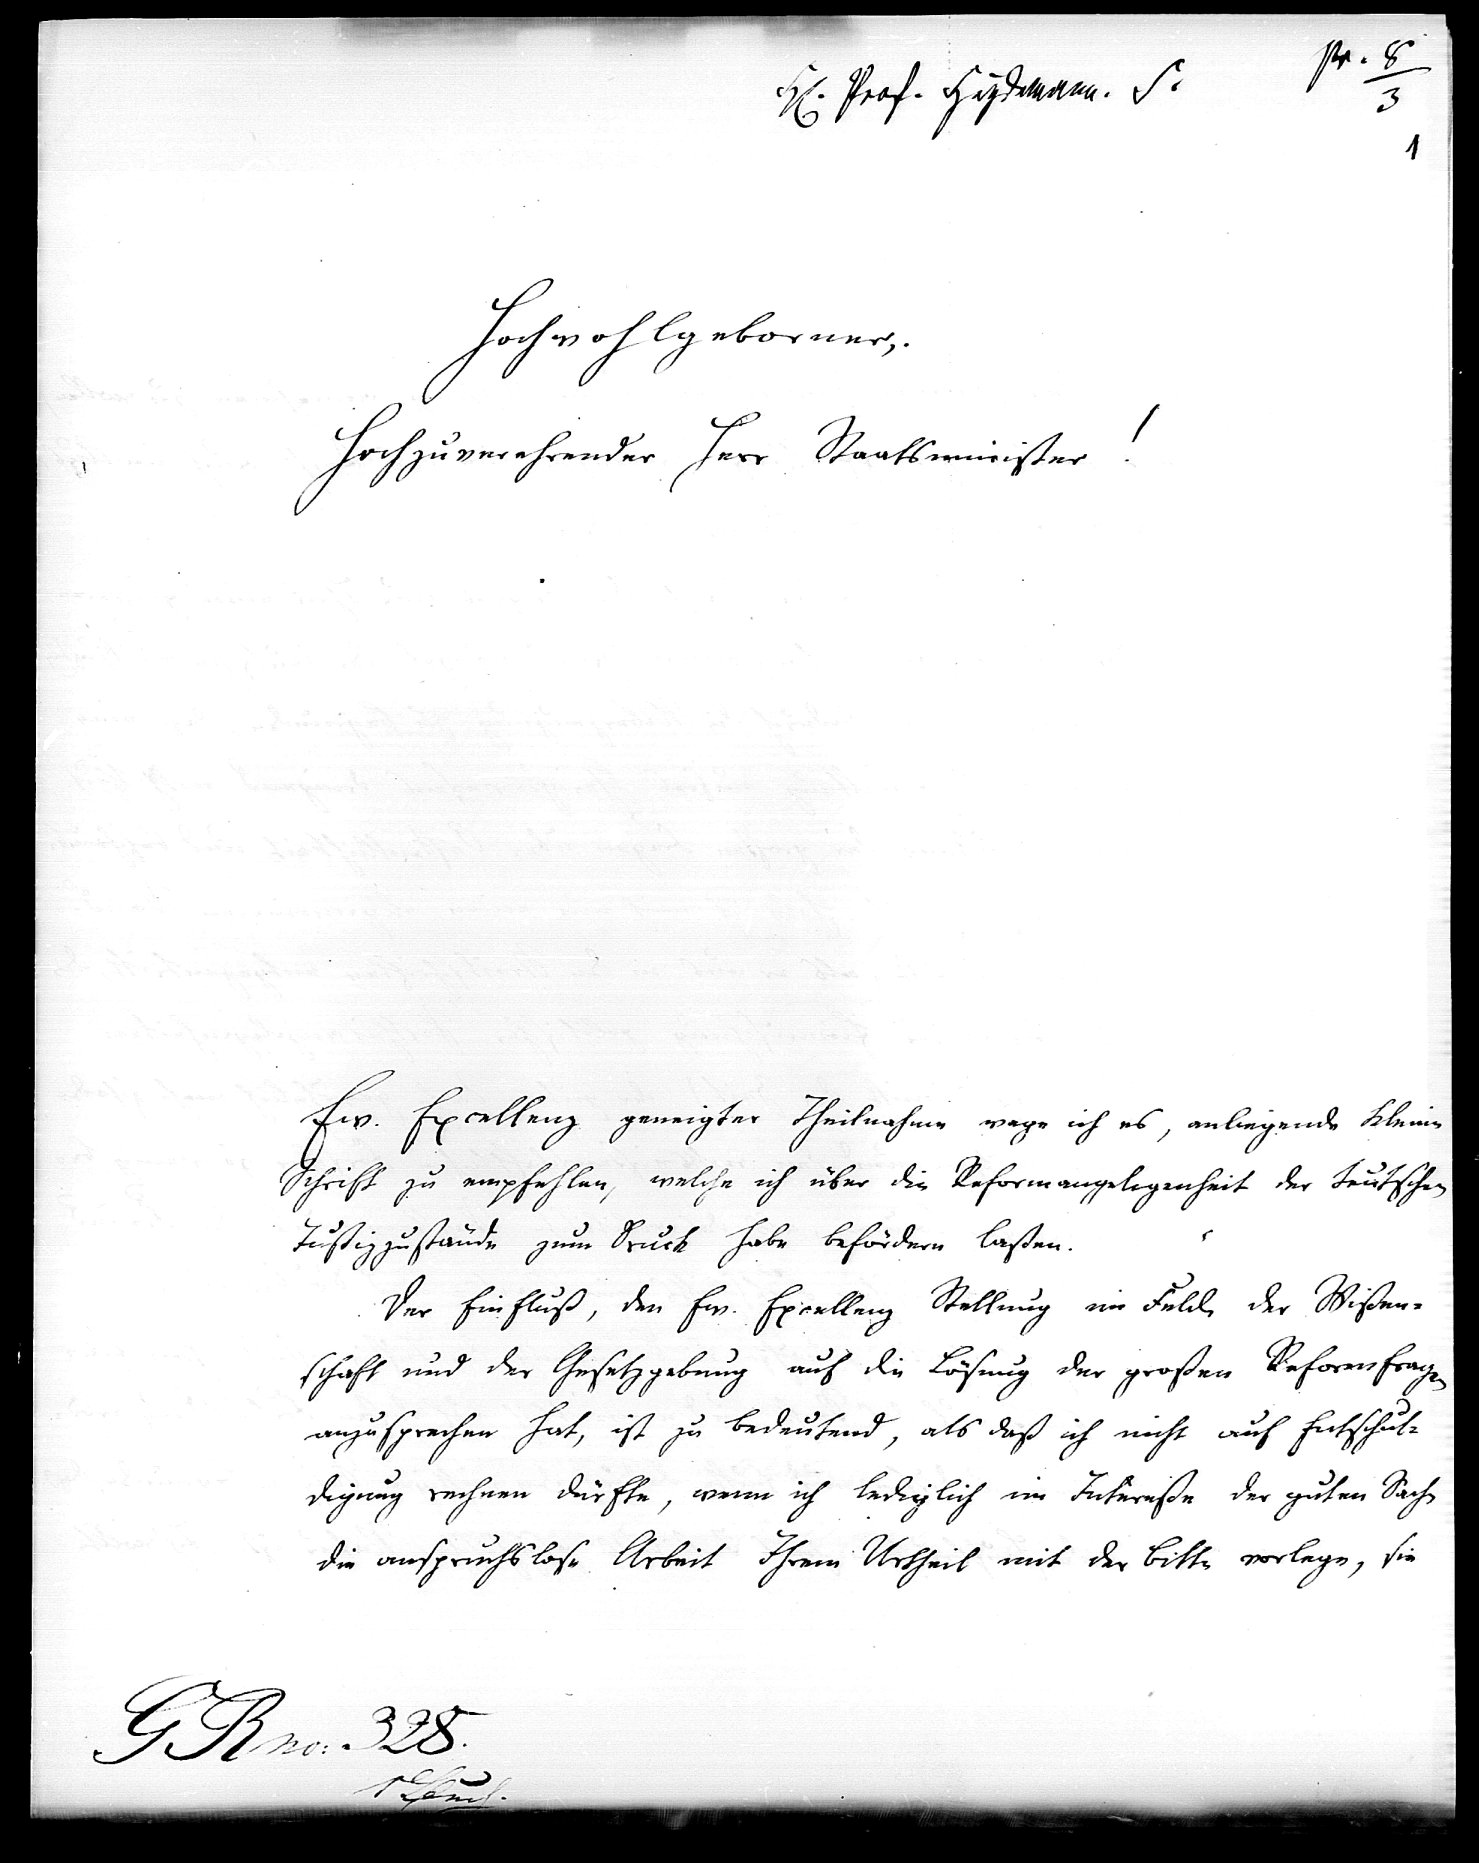 H. Prof. Heydemann. S.
pr. 8/3
1
Hochwohlgeborner,
Hochzuverehrender Herr Staatsminister!
Ew. Excellenz geneigter Theilnahme wage ich es, anliegende kleine
Schrift zu empfehlen, welche ich über die Reformangelegenheit der teutschen
Justizzustände zum Druck habe befördern laßen.
Der Einfluß, den Ew. Excellenz Stellung im Felde der Wißen-
schaft und der Gesetzgebung auf die Lösung der großen Reformfragen
anzusprechen hat, ist zu bedeutend, als daß ich nicht auf Entschul-
digung rechnen dürfte, wenn ich lediglich im Intereße der guten Sache
die anspruchslose Arbeit Ihrem Urtheil mit der Bitte vorlege, sie
GR no. 328.